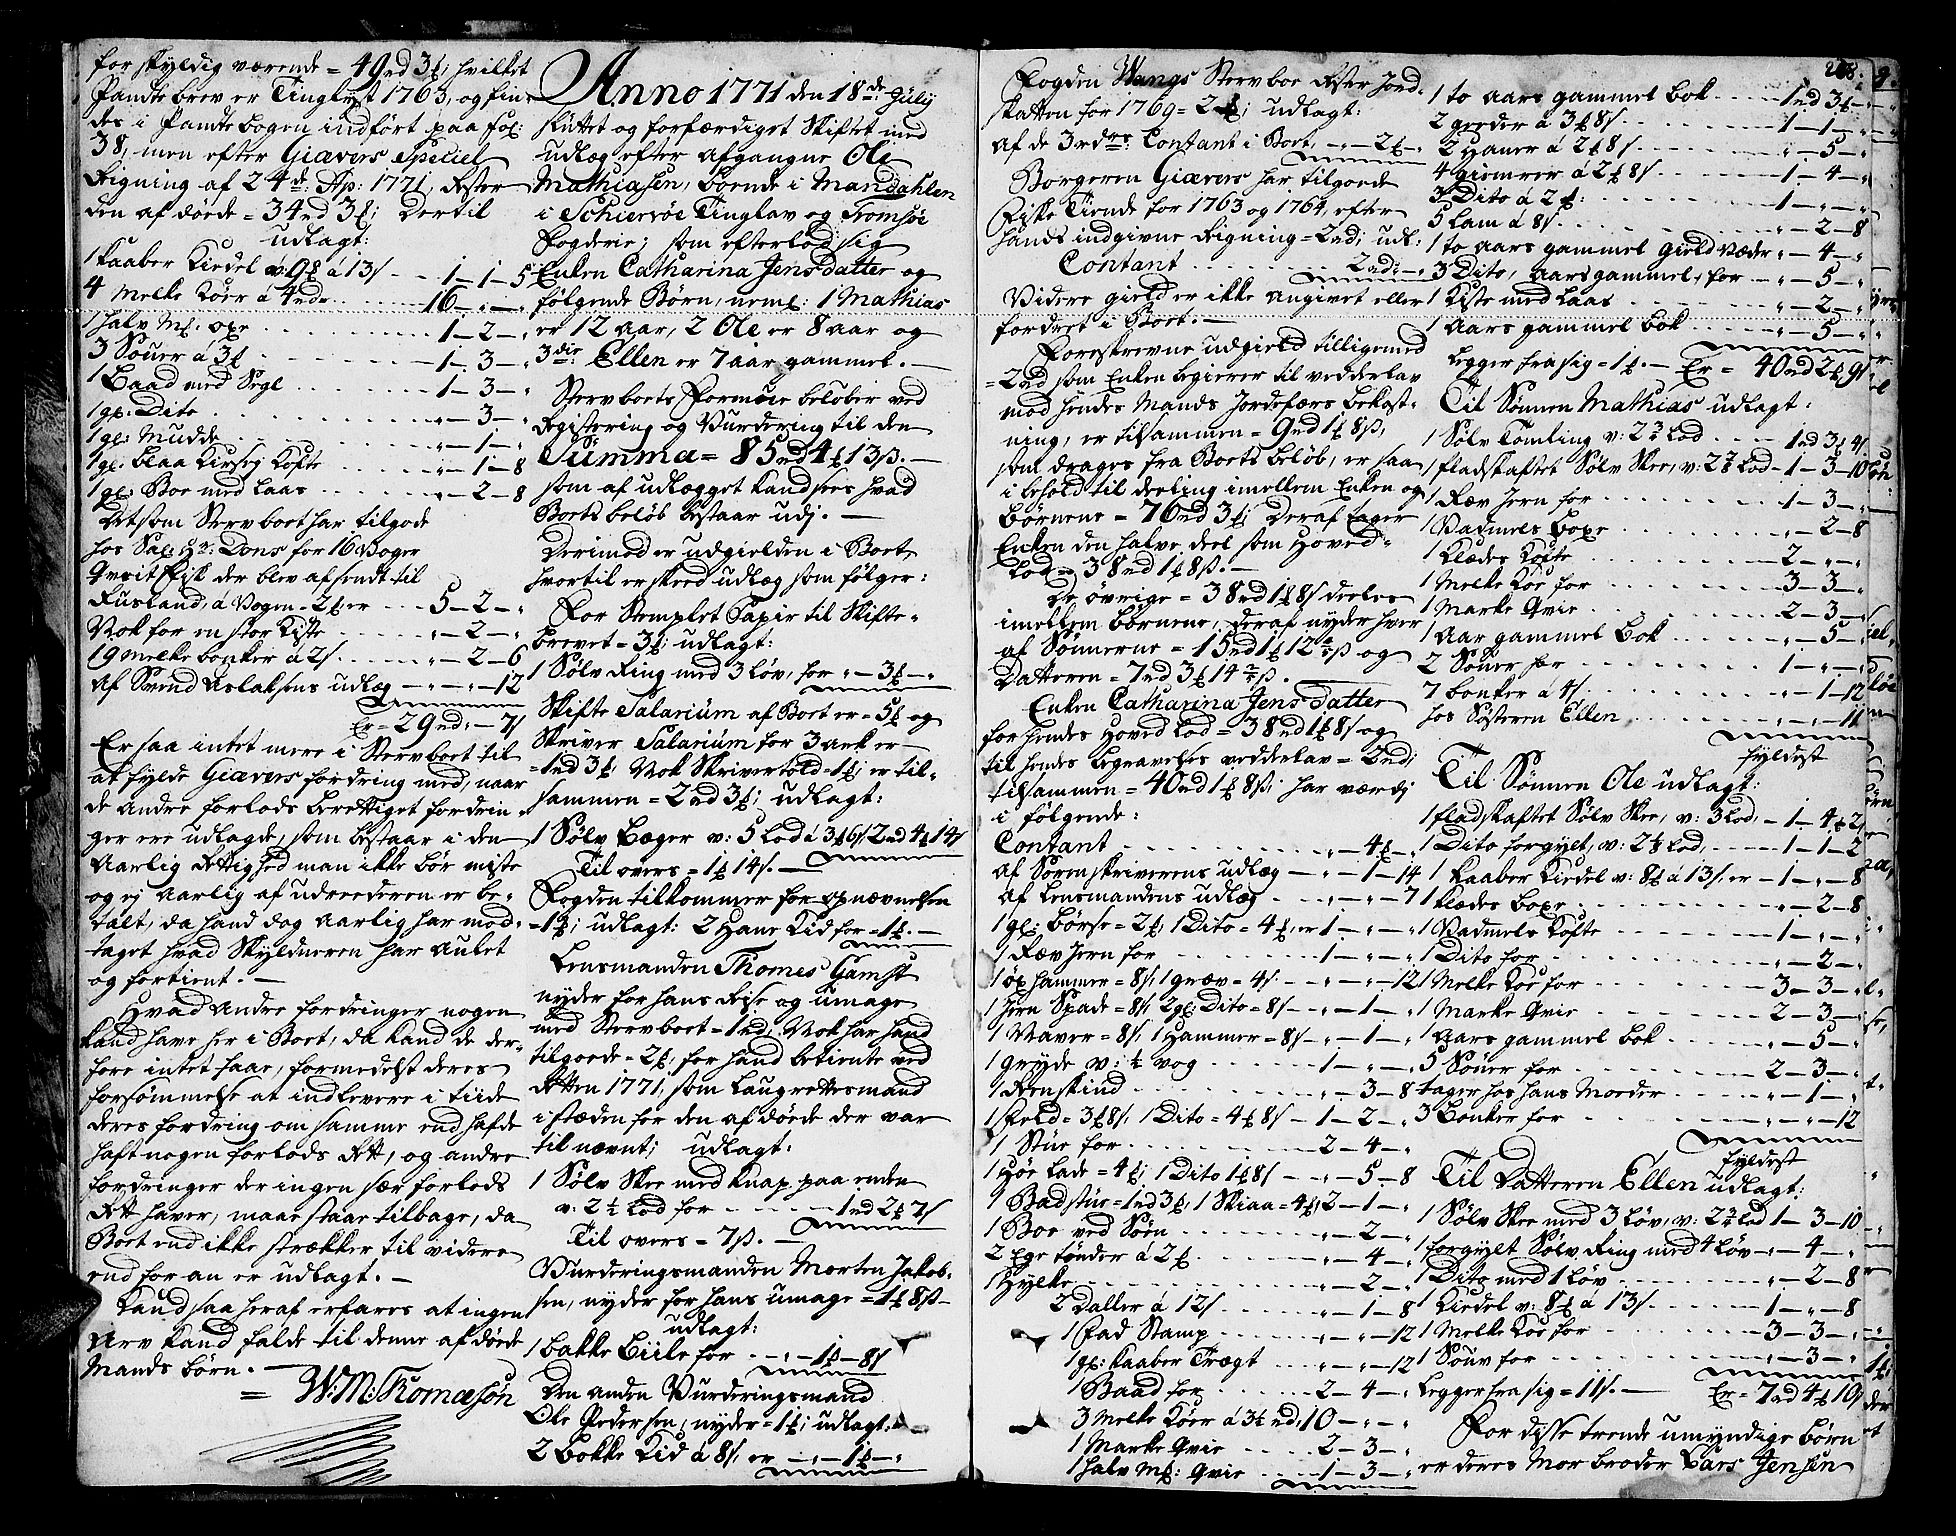 for skyldig værende = 49rd 3£; hvilket
Pandtebrev er Tinglyst 1763, og fin-
des i Pandtebogen indført paa fol:
38, men efter Giævers Speciel
Rigning af 24de Ap: 1771, Rester
den afdøede = 34rd 3£; Dertil
udlagt:
1 kaaber Kiedel v: 9£ á 13s . . . 1 – 1 – 5
4 Melke Køer á 4rdr . . . 16 – „ – „
1 halv Mk: oxe . . . 1 – 2 – „
3 Søuer á 3£ . . . 1 – 3 – „
1 Baad med Segl . . . 1 – 3 – „
1 gl: Dito . . . „ – 3 – „
1 gl: Mudde . . . „ – 1 – „
1 gl: blaa Kirsej Kofte . . . „ – 1 – 8
1 gl: Boe med Laas . . . „ – 2 – 8
Det som Stervboet har tilgode
hos Sal: Hr: Dons for 16 Voger
Qveitfisk der blev afsendt til
Rusland, á Vogen = 2£: er . . . 5 – 2 – „
Nok for en stor Kiste . . . „ – 2 – „
19 Melke bonker á 2s . . . „ – 2 – 6
Af Svend Aslaksens udlæg – „ – „ – 12
Er = 29rd „ – 7s
Er saa intet mere i Stervboet til
at fylde Giævers fordring med, naar
de andre forlods berettiget fordrin-
ger ere udlagde, som bestaar i den
Aarlig Rettighed man ikke bør miste
og ej Aarlig af udreederen er be-
talt, da hand dog Aarlig har mod-
taget hvad Skyldneren har Avlet
og fortient. –
Hvad Andre fordringer nogen
kand have her i Boet, da kand de der-
fore intet faae, formedelst deres
forsømmelse at indlevere i tiide
deres fordring om samme end hafde
haft nogen forlods Rett, og andre
fordringer der ingen sær forlods
Rett haver, maae staae tilbage, da
Boet end ikke strækker til videre
end for an er udlagt. –
Kand saa heraf erfares at ingen
Arv kand falde til denne afdøde
Mands børn. –
= W: M: Thomæsøn
Anno 1771 den 18de: July
sluttet og forfærdiget Skiftet med
udlæg efter afgangne Ole
Mathiasen, boende i Mandahlen
i Schiervøe Tinglav og Tromsøe
Fogderie; som efterlod sig
Enken Catharina Jensdatter og
følgende Børn, neml: 1 Mathias
er 12 aar, 2 Ole er 8 aar og
3die Ellen er 7 aar gammel. –
Stervboets Formue beløber ved
Registering og Vurdering til den
Summa = 85rd 4£ 13s. –
som af udlægget kand sees hvad
Boets beløb bestaar udj. –
Derimod er udgielden i Boet
hvortil er skeed udlæg som følger:
For Stemplet Papir til Skifte-
brevet = 3£; udlagt:
1 Sølv Ring med 3 Løv, for „ – 3£ – „
Skifte Salarium af Boet er = 5£ og
Skriver Salarium for 3 ark er
= 1rd 3£; Nok Skrivertold = 1£; er til-
sammen = 2rd 3£; udlagt:
1 Sølv Bæger v: 5 Lod á 3£ 6s 2rd 4£ 14s
Til overs = 1£ 14s. –
Fogden tilkommer for opnævnelsen
= 1£; udlagt: 2 Hane Kid for = 1£. –
Lensmanden Thomes Gamst
nyder for hans Rejse og umage
med Stervboet = 1rd; Nok har hand
tilgoede = 2£; for hand betiente ved
Retten 1771, som Laugrettesmand
i stæden for den afdøde der var
til nævnt; udlagt:
1 Sølv Skee med Knap paa enden
v: 2½ Lod for . . . 1rd 2£ 7s
Til overs = 7s. –
Vurderingsmanden Morten Jakob-
sen, nyder for hans umage = 1£ 8s –
udlagt:
1 bakke Biile for „ – 1£ – 8s
Den anden Vurderingsmand
Ole Pedersen, nyder = 1£; udlagt:
2 Bokke Kid á 8s, er – „ – 1£ – „
Fogden Wangs Stervboe Rester Jord-
skatten for 1769 = 2£; udlagt:
Af de 3rdr Contant i Boet, – „ – 2£ – „
Borgeren Giævers har tilgoede
Fiske Tiende for 1763 og 1764, efter
hands indgivne Rigning = 2rd; udl:
Contant . . . 2rd: – „
Videre gield er ikke angivet eller
fordret i Boet. –
Foreskrevne udgield tilligemed
= 2rd som Enken begierer til vedderlav
mod hendes Mands Jordefærs bekost-
ning, er tilsammen = 9rd 1£ 8s,
som drages fra Boets beløb, er saa
i behold til deeling imellem Enken og
børnene = 76rd 3£; Deraf tager
Enken den halve deel som Hoved-
Lod = 38rd 1£ 8s. –
De øvrige = 38rd 1£ 8s deeles
imellem børnene, deraf nyder hver
af Sønnerne = 15rd 1£ 12s og
Datteren = 7rd 3£ 14s. –
Enken Catharina Jensdatter
for hendes Hoved Lod = 38rd 1£ 8s og
til hendes begravelses vedderlav = 2rd;
tilsammen = 40rd 1£ 8s; har værdj
i følgende:
Contant . . . „ – 4£ – „
Af Sorenskriverens udlæg – „ – 1 – 14
Af Lensmandens udlæg . . . „ – „ – 7
1 gl: Børse = 2£; 1 Dito = 4£, er 1 – „ – „
1 Ræv Jern for . . . 1 – „ – „
1 øx hammer = 8s, 1 græv = 4s . . . „ – „ – 12
1 Jern Spade = 8s, 2 gl: Dito = 8s – „ – 1 – „
1 Naver = 8s, 1 Hammer = 8s – „ – 1 – „
1 gryde v: ½ vog . . . 1 – „ – „
1 Reenskind . . . „ – 3 – 8
1 Feld = 3£ 8s, 1 Dito = 4£ 8s – 1 – 2 – „
1 Stue for . . . 2 – 4 – „
1 Høe Lade = 4£; 1 Dito 1£ 8s – „ – 5 – 8
1 Badstue = 1rd 3£, 1 Skiaa = 4£, 2 – 1 – „
1 Boe ved Søen . . . „ – 2 – „
2 Ege tønder á 2£ . . . „ – 4 – „
1 Hylke . . . „ – 2 – „
2 Daller á 12s . . . „ – 1 – 8
1 Fad Stamp . . . „ – „ – 12
1 gl: kaaber Trægt . . . „ – „ – 12
1 Baad for . . . 2 – 4 – „
3 Melke Køer á 3½ rd, 10 – „ – „
1 Marke Qvie . . . 2 – 3 – „
1 halv Mk: Qvie . . . 1 – 3 – „
268.
1 to Aars gammel Bok . . . 1rd 3£ – „
2 geeder á 3£ 8s . . . 1 – 1 – „
2 Haner á 2£ 8s . . . „ – 5 – „
4 giemrer á 2£ 8s . . . 1 – 4 – „
3 Dito á 2£: . . . 1 – „ – „
5 Lam á 8s . . . „ – 2 – 8
1 to Aars gammel gield Væder „ – 4 – „
3 Dito, Aars gammel, for – „ – 5 – „
1 Kiste med Laas . . . „ – 2 – „
1 Aars gammel bok . . . „ – 5 – „
Legger fra sig = 1£. – Er = 40rd 2£ 9s
Til Sønnen Mathias udlagt:
1 Sølv Tomling v: 2¾ Lod . . . 1rd 3£ 4s
1 fladskaftet Sølv Skee, v: 2¾ Lod – 1 – 3 – 10
1 Ræv Jern for . . . 1 – 3 – „
1 Vadmels boxe . . . „ – 2 – 8
1 Klædes Kofte . . . 2 – „ – „
1 Melke Koe for . . . 3 – 3 – „
1 Marke Qvie . . . 2 – 3 – „
1 Aar gammel bok . . . „ – 5 – „
2 Søuer for . . . 1 – „ – „
7 bonker á 4s . . . „ – 1 – 12
hos Søsteren Ellen . . . „ – „ – 11
fyldest
Til Sønnen Ole udlagt:
1 fladskaftet Sølv Skee, v: 3 Lod, – 1 – 4£ 2s
1 Dito forgylt, v: 2½ Lod, . . . 1 – 1 – 2
1 kaaber Kiedel v: 8£ á 13s, er – 1 – „ – 8
1 Klædes boxe . . . „ – 2 – 8
1 Vadmels Kofte . . . 1 – „ – „
1 Dito for . . . „ – 2 – „
1 Melke Koe for . . . 3 – 3 – „
1 Marke Qvie . . . 2 – 3 – „
1 Aars gammel bok . . . „ – 5 – „
5 Søuer for . . . 2 – 3 – „
tager hos hans Moeder . . . „ – 1 – „
3 bonker for . . . „ – „ – 12
fyldest
Til Datteren Ellen udlagt:
1 Sølv Skee med 3 Løv, v: 2¾ Lod 1 – 3 – 10
1 forgylt Sølv Ring med 4 Løv – „ – 4 – „
1 Dito med 1 Løv . . . „ – 2 – 8
1 Kiedel v: 8£ á 13s . . . 1 – „ – 8
1 Melke Koe for . . . 3 – 3 – „
1 Søuv for . . . „ – 3 – „
Legger fra sig = 11s. – Er = 7rd 4£ 10s
For disse trende umyndige børn
er deres Mor broder Lars Jensen